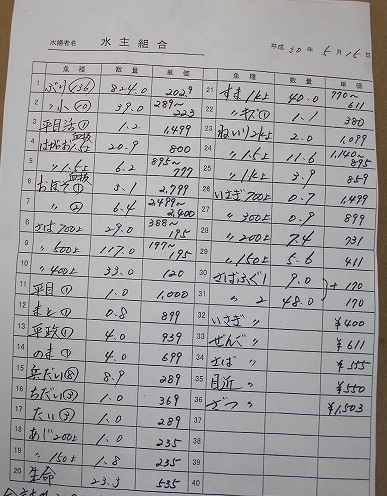 水揚者名 水主組合 平成 30年 5月16日
魚種 数量 単価 魚種 数量 単価
1 ぶり 136 824.0 202.9
2 〃小 10 39.0 289~223
3 平目活① 血抜 1.2 1,499
4 はがつお1.5上 20.9 800
5 〃1.5下 血抜 6.2 895~777
6 3.1 2,799
7 〃② 6.4 2,499~2,400
8 さば700上 29.0 388~195
9 〃500上 117.0 197~195
10 〃400上 33.0 120
11 平目① 1.0 1,000
12 まと① 0.8 899
13 平政① 4.0 939
14 のま① 4.0 699
15 兵だい⑧ 8.9 289
16 ちだい③ 1.0 369
17 たい③ 1.0 289
18 あじ200上 1.0 235
19 〃150上 1.8 235
20 生命 23.3 535
21 すま1k上 40.0 770~611
22 〃キズ① 1.1 380
23 ねいり2k上 2.0 1,099
24 〃1.5上 11.6 1,140~895
25 〃1k上 3.9 859
26 いさぎ700上 0.7 1,499
27 〃300上 0.9 899
28 〃200上 7.4 731
29 〃150上 5.6 411
30 さばふぐ1 9.0 170
31 〃2 48.0 170
32 いさぎ〃 ¥400
33 ぜんご〃 ¥611
34 さば〃 ¥555
35 目近〃 ¥550
36 ざつ〃 ¥1,503